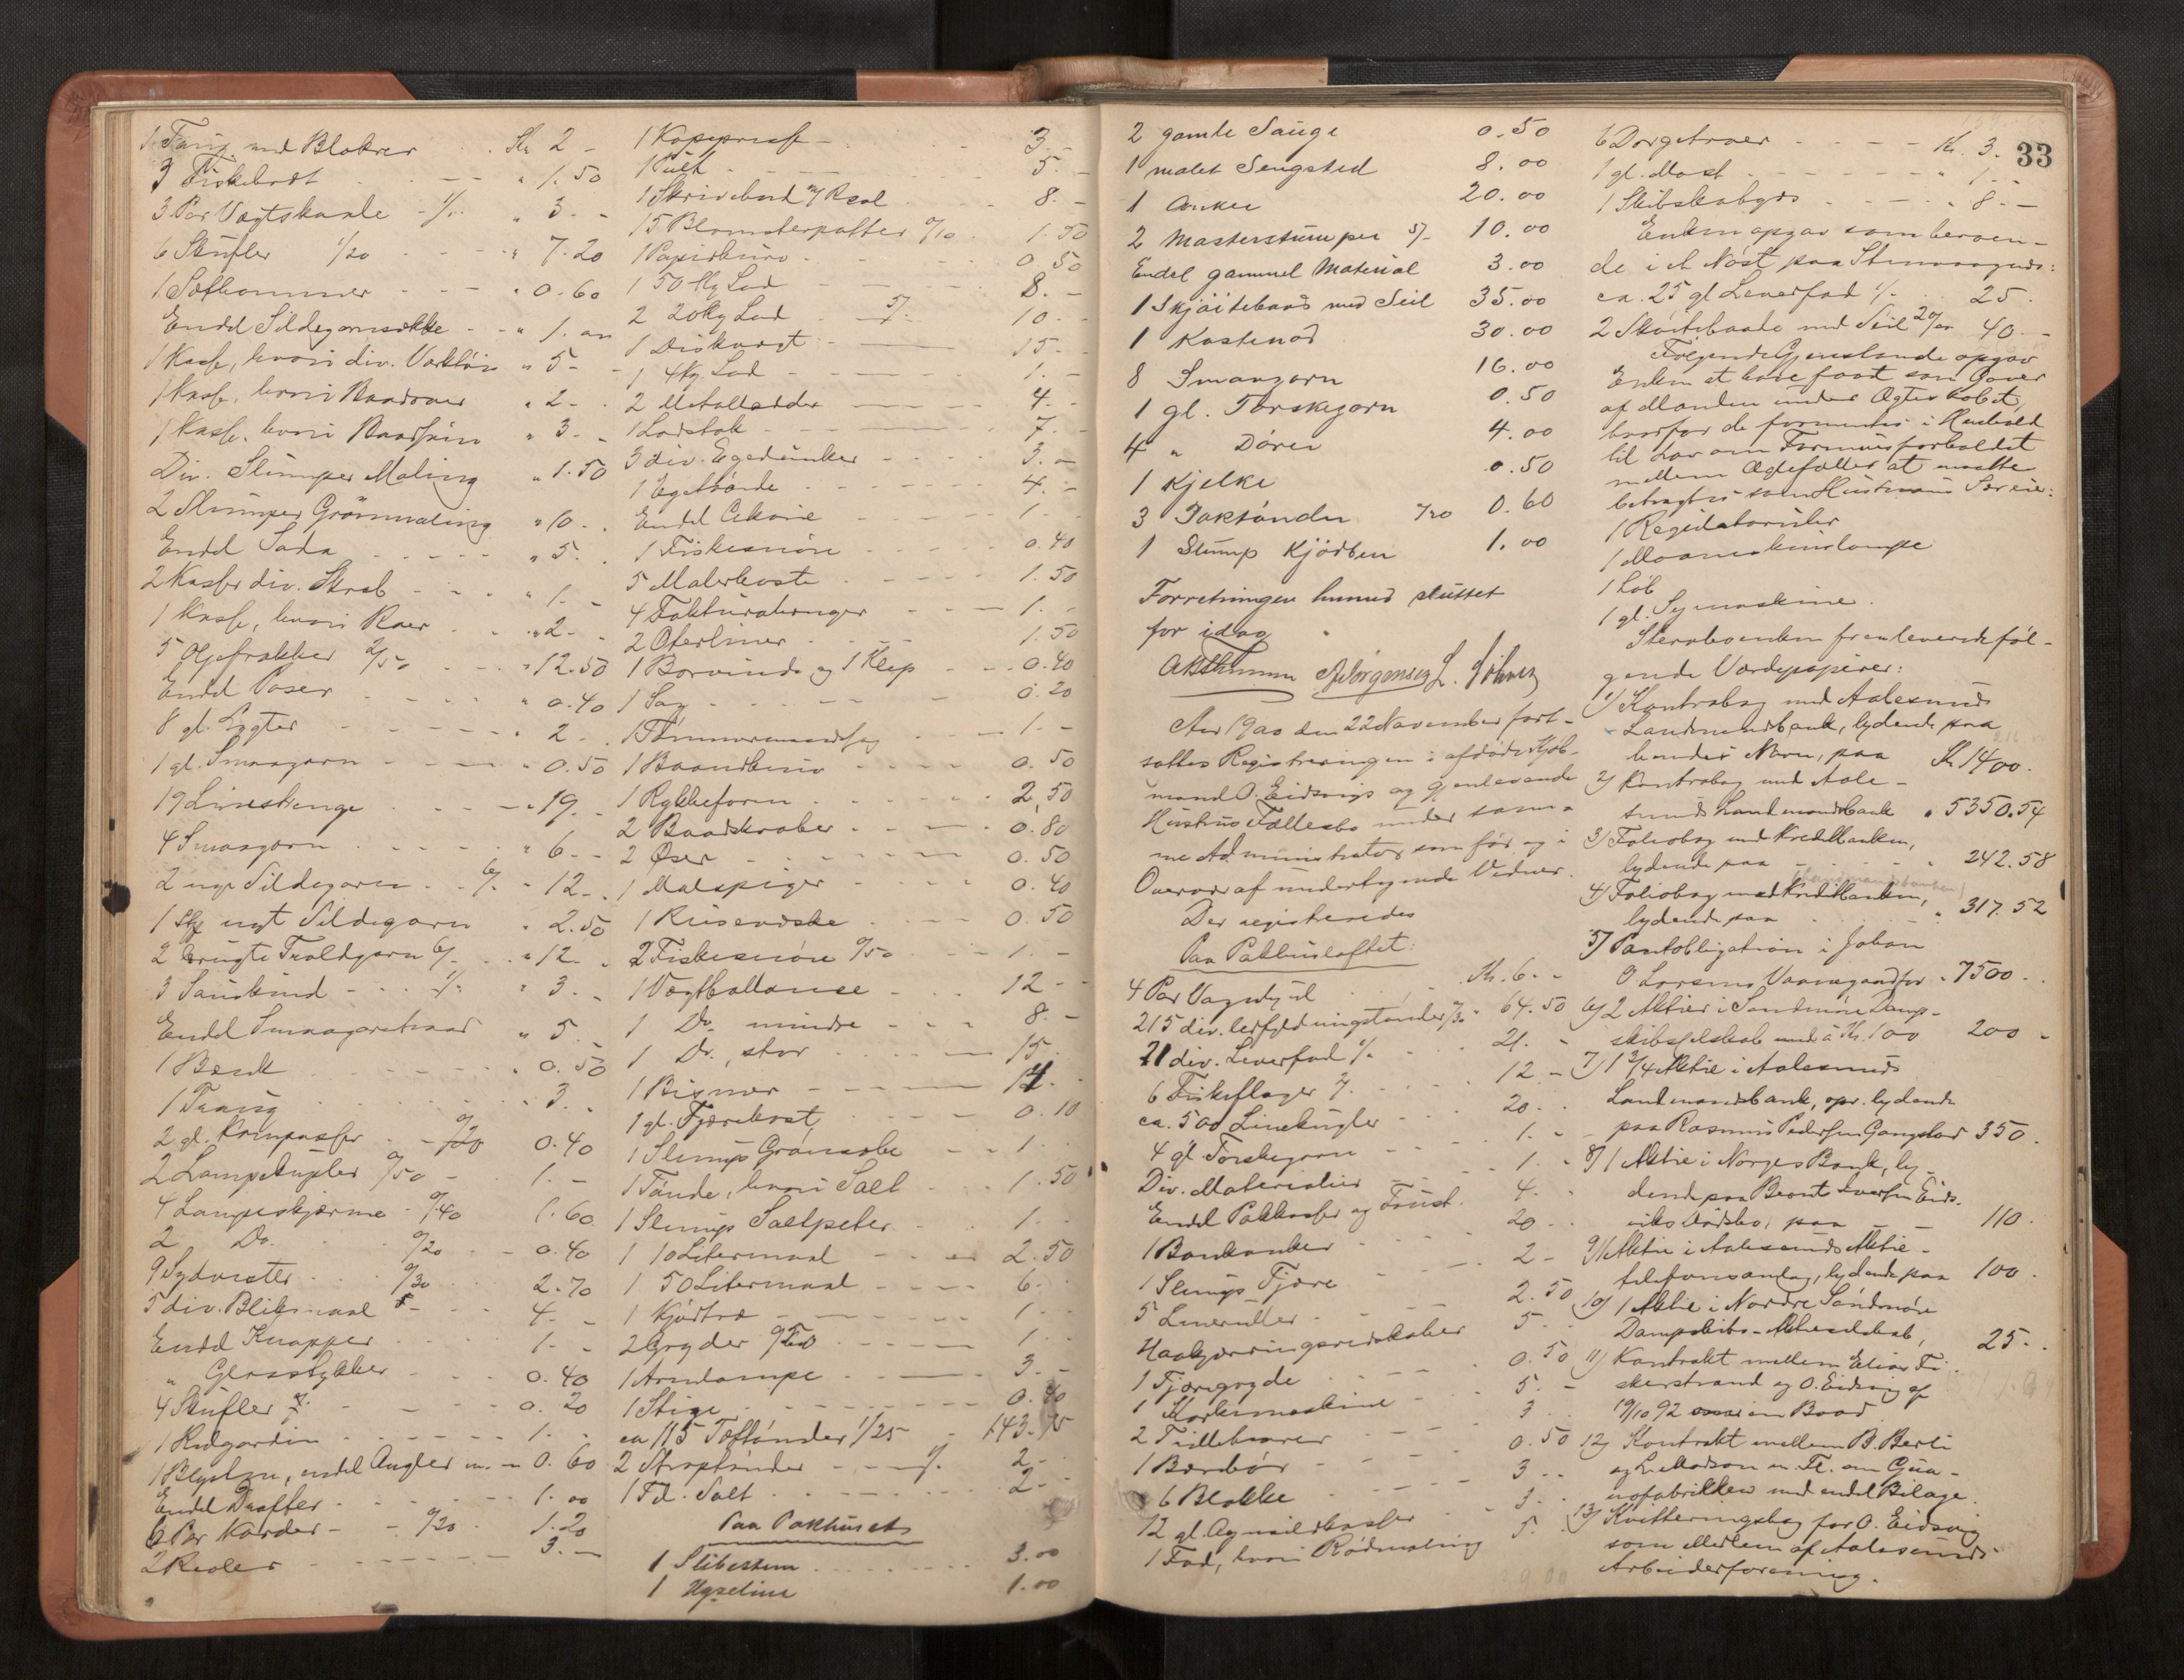 1 Taug med Blokker Kr 2 -
3 Fiskebræt " 1.50
3 Par Vægtskaale 1/- " 3 -
6 Skufler 1/20 " 7.20
1 Sæthammer " 0.60
Endel Sildegarnsække " 1.00
1 Kasse, hvori div. Værktøi " 5 -
1 Kasse, hvori Baadroer " 2 -
1 Kasse, hvori Baadsøm " 3 -
Div. Slumper Maling " 1.50
2 Slumper Grønmaling " 10 -
Endel Soda " 5.
2 Kasser div. Skrab " 1. -
1 Kasse, hvori Roer " 2 -
5 Oljefrakker 2/50 " 12.50
Endel Poser " 0.40
8 gl. Lygter " 2 -
1 gl. Smaagarn " 0.50
19 Linestrenge " 19. -
4 Smaagarn " 6 -
2 nye Sildegarn 6/- " 12 -
1 Stk nyt Sildegarn " 2.50
2 brugte Troldgarn 6/- " 12 -
3 Saueskind 1/- " 3 -
Endel Smaagarnstraad " 5
1 Bænk " 0.50
1 Traug " 3. -
2 gl. Kompasser 0/20 0.40
2 Lampekupler 0/50 1. -
4 Lampeskjærme 0/40 1.60
2 Do. 0/20 0.40
9 Sydvester 0/30 2.70
5 div. Blikmaal 4 -
Endel Knapper 1 -
" Glasstykker 0.40
4 Skufler 0.20
1 Rulgardin 1. -
1 Blysten, endel Angler m. m. 0.60
Endel Duffler 1.00
6 Par Karder 0/20 1.20
2 Reoler 3. -
1 Kopipresse 3. -
1 Pult 5. -
1 Skrivebord m/ Reol 8. -
15 Blomsterpotter 0/10 1.50
1 Papirkurv 0.50
1 50 Kg Lod 8. -
2 20 Kg Lod 5/- 10 -
1 Diskvægt 15 -
1 4 Kg. Lod 1. -
2 Metallodder 4 -
1 Lodstok 7. -
3 div. Egedunker 3. -
1 Egetønde 4. -
Endel Cikorie 1 -
1 Fiskesnøre 0.40
5 Malerkoste 1.50
4 Fakturabøger 1. -
2 Oterliner 1.50
1 Borvinde og 1 Klep 0.40
1 Sag 0.20
1 Tømmermandssag 1. -
1 Baandkniv 0.50
1 Rykkeform 2.50
2 Baadskraber 0.80
2 Øser 0.50
1 Malspiger 0.40
1 Kuseræske 0.50
2 Fiskesnøre 0/50 1. -
1 Vægtballance 12 -
1 Do. mindre 8. -
1 Do., stor 15.
1 Bismer 14. -
1 gl. Tjærekost 0.10
1 Slump Grønsæbe 1 -
1 Tønde, hvori Salt 1.50
1 Slump Saltpeter 1. -
1 10 Litermaal 2.50
1 50 Litermaal 6. -
1 Kjørtræ 1 -
2 Gryder 0/50 1 -
1 Armlampe 3. -
1 Stige 0.40
ca 115 Tettønder 1/25 143.75
2 Straptønder 1/- 2 -
1 Td. Salt 2 -
Paa Pakhuset
1 Slibesten 3.00
1 Hyseline 1.00
33
2 gamle Sauge 0.50
1 malet Sengsted 8.00
1 Anker 20.00
2 Masterstumper 5/- 10.00
Endel gammel Material 3.00
1 Skjøitebaad med Seil 35.00
1 Kastenod 30.00
8 Smaagarn 16.00
1 gl. Torskegarn 0.50
4 " Dører 4.00
1 Kjelke 0.50
3 Saktønder 0/20 0.60
1 Slump Kjødben 1.00
Forretningen hermed sluttet
for idag
N Jørgensen L.
Aar 1900 den 22 November fort-
sattes Registreringen i afdøde Kjøb-
mand O. Eidsvigs og gjenlevende
Hustrus Fællesbo under sam-
me Administrator som før og i
Overvær af undertegnede Vidner.
Der registreredes
Paa Pakhusloftet:
4 Par Vognhjul Kr. 6 -
215 div. lerfyldningstønder 0/30 64.50
21 div. Leverfad 1/- 21. -
6 Fiskeflager 2/- 12 -
ca. 500 Linekugler 20 -
4 gl Torskegarn 1. -
Div. Materialier 1 -
Endel Pakkasser og Trust. 4. -
1 Bankanker 20 -
1 Slump Tjære 2 -
5 Lineruller 2.50
Haakjærringsredskaber 5 -
1 Tjæregryde 0.50
1 Korkemaskine 5. -
2 Trillebaarer 3 -
1 Bærebør 0.50
6 Blokke 3 -
12 gl. Agnsildkasser 3. -
1 Fad, hvori Rødmaling 5. -
6 Dorgetroer Kr. 3.
1 gl. Mast " 1. -
1 Skibskabys " 8. -
Enken opgav som beroen-
de i et Nøst paa Stornesgrund:
ca. 25 gl Leverfad 1/- 25.
2 Skøitebaade med Seil 20/00 40. -
Følgende Gjenstande opgav
Enken at have faaet som Gaver
af Manden under Ægteskabet,
hvorfor de formenes i Henhold
til Lov om Formuesforholdet
mellem Ægtefæller at maatte
betragtes som Hustruens Særeie:
1 Regulatoruhr
1 Maaneskinslampe
1 Løb
1 gl. Symaskine.
Stervboenken fremleverede føl-
gende Værdipapirer:
1) Kontrabog med Aalesunds
Landmandsbank, lydende paa
hendes Navn, paa Kr 1400.
2) Kontrabog med Aale-
sunds Landmandsbank " 5350.54
3) Foliobog med Kreditbanken,
lydende paa " 242.58
(Landmandsbanken)
4) Foliobog med Kreditbanken,
lydende paa " 317.52
5) Pantobligation i Johan
O Larsens Vaaningshus for " 7500.
6) 2 Aktier i Søndmøre Damp-
skibsselskab med à Kr. 100 200 -
7) 1 3/4 Aktie i Aalesunds
Landmandsbank, opr. lydende
paa Rasmus Pedersen Gangstad 350.
8) 1 Aktie i Norges Bank, ly-
dende paa Beont Iversen Eids-
viks Dødsbo, paa 110.
9) 1 Aktie i Aalesunds Aktie-
telefonanlæg, lydende paa 100.
10) 1 Aktie i Nordre Søndmøre
Dampskibs-Aktieselskab, 25. -
11) Kontrakt mellem Elias Fi-
skerstrand og O. Eidsvig af
19/10 92 om en Baad
12) Kontrakt mellem B. Berli
og L. Madsen m. Fl. om Gua-
nofabrikken med endel Bilage.
13) Kvitteringsbog for O. Eidsvig
som Medlem af Aalesunds
Arbeiderforening.